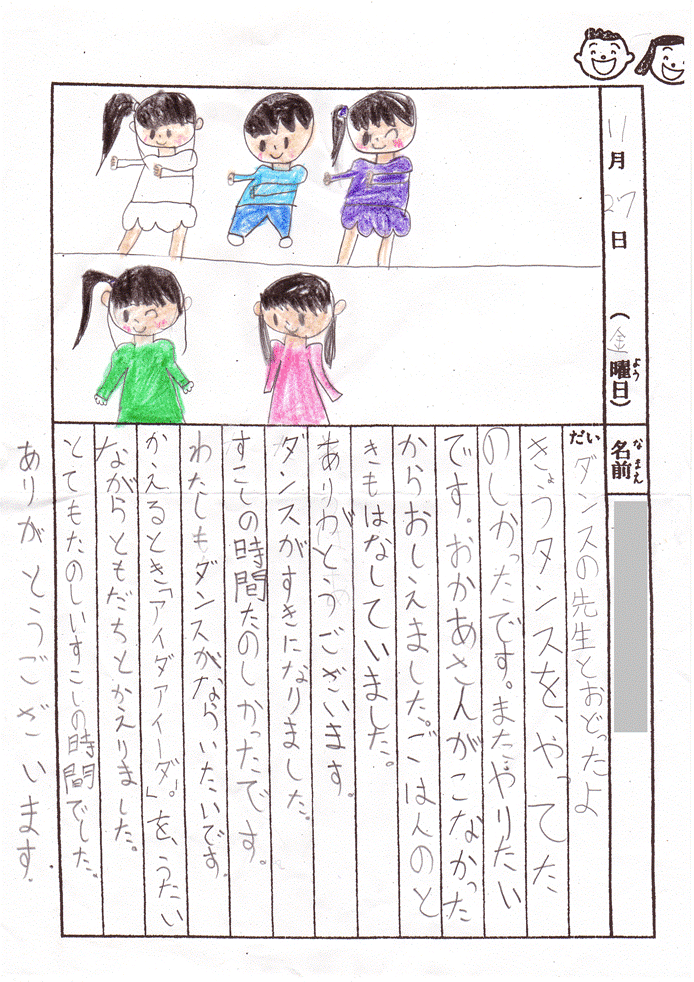 11月27日(金曜日)
よう
名前
なまえ
だい ダンスの先生とおどったよ
きょうダンスを、やってた
のしかったです。またやりたい
です。おかあさんがこなかった
からおしえました。ごはんのと
きもはなしていました。
ありがとうございます。
ダンスがすきになりました。
すこしの時間たのしかったです。
わたしもダンスがならいたいです。
かえるとき「アイダアイーダ。」を、うたい
ながらともだちとかえりました。
とてもたのしいすこしの時間でした。
ありがとうございます。